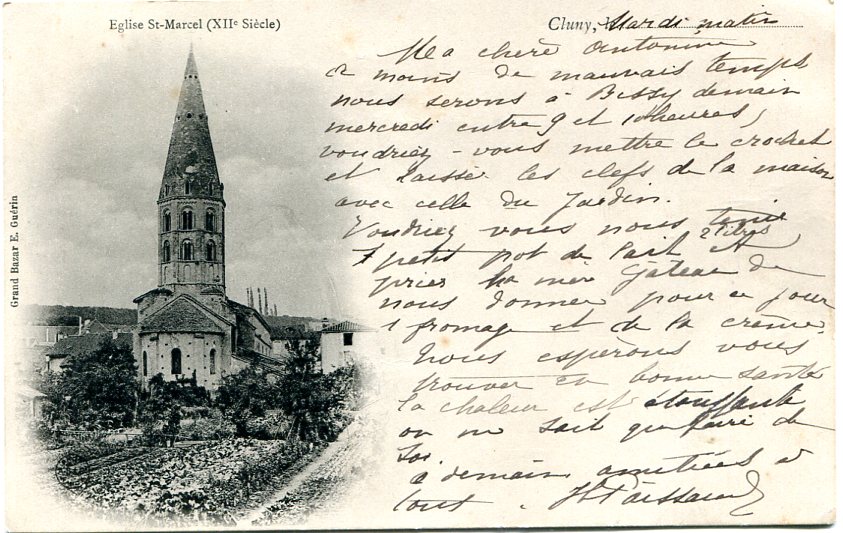 Eglise St-Marcel (XIIe Siècle)
Grand Bazar E. Guérin
Cluny, Mardi matin
Ma chère Antonine
à moins de mauvais temps
nous serons à Bissy demain
mercredi entre 9 et 10 heures,
voudriez-vous mettre le crochet
et laisser les clefs de la maison
avec celle du jardin.
Voudriez vous nous tenir
1 petit pot de lait 2 litres et
prier la mère Gâteau de
nous donner pour ce jour
1 fromage et de la crème.
Nous espérons vous
trouver en bonne santé
la chaleur est étouffante
on ne sait que faire de
soi.
à demain amitiées à
tout